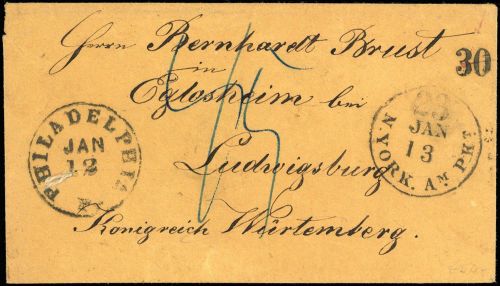 Herrn Bernhardt Brust
in
Eglosheim bei
Ludwigsburg
Königreich Würtemberg.
30
PHILADELPHIA
JAN
12
23
JAN
13
N. YORK. AM. PKT